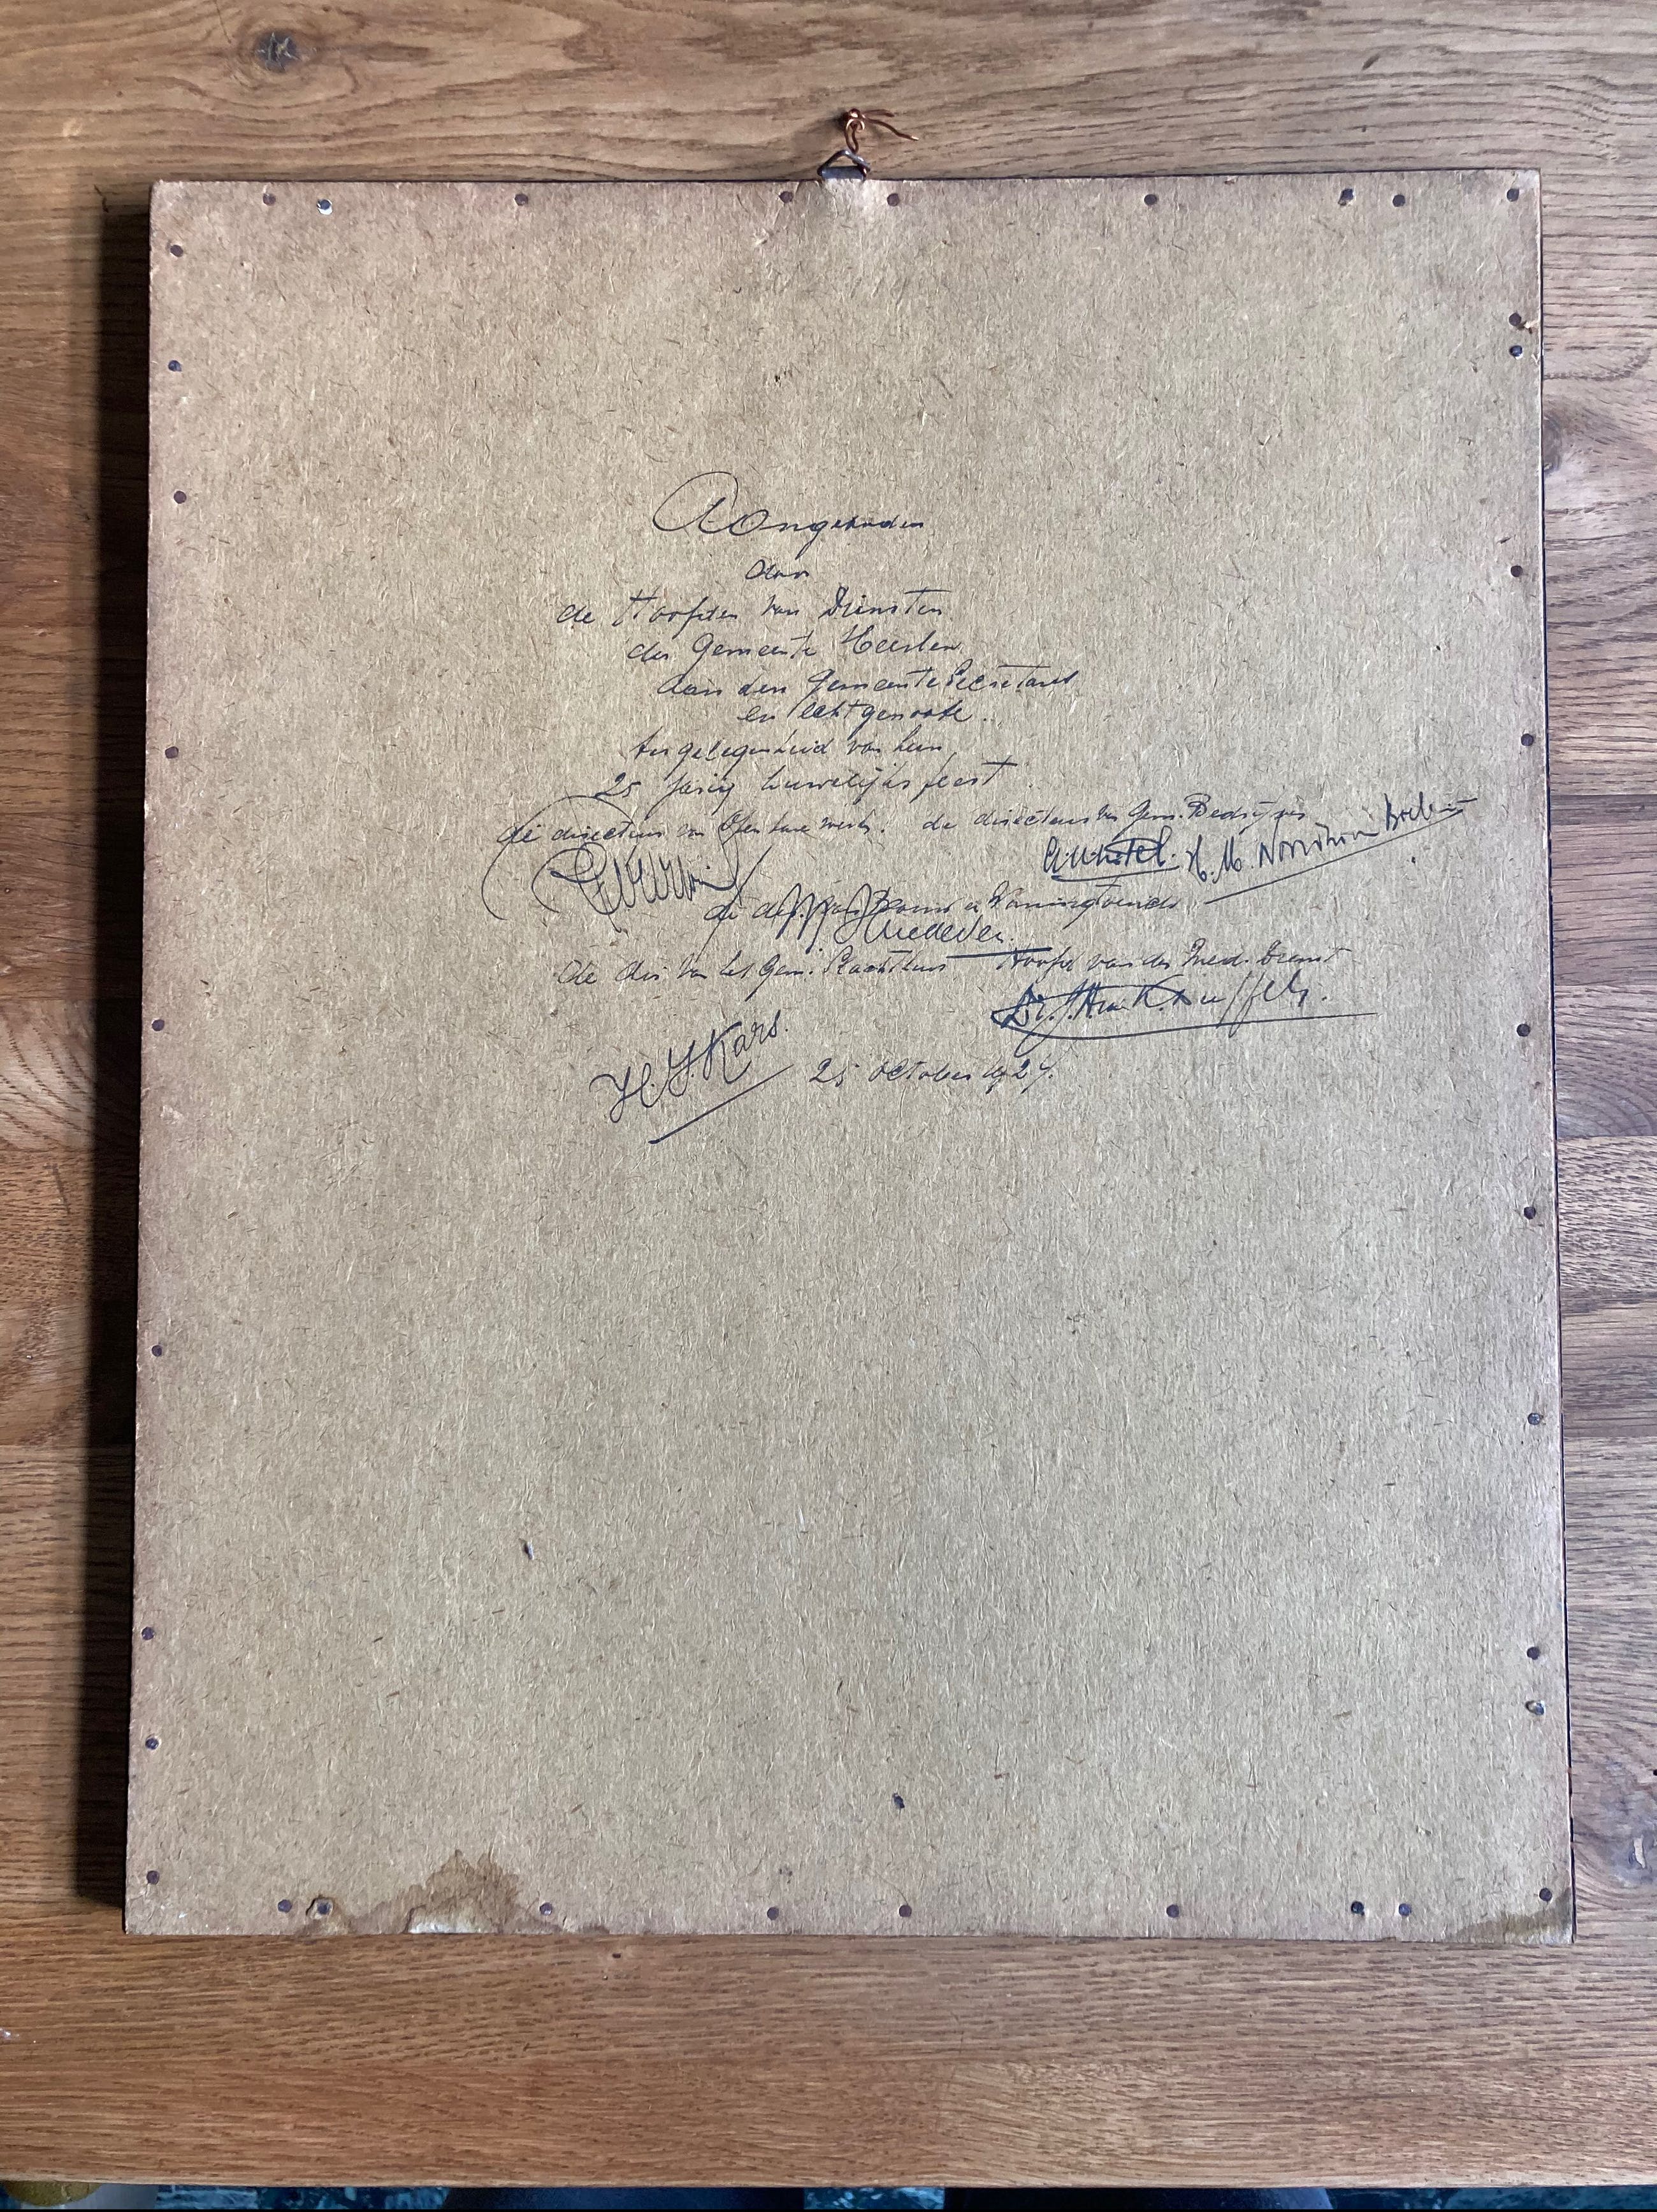 Aangeboden
door
de Hoofden van Diensten
der Gemeente Heerlen
aan den Gemeente Secretaris
en echtgenoote.
ter gelegenheid van hun
25 jarig huwelijksfeest
de directeur van Openbare werk. de directeur van Gem. Bedrijven
de van Bouw en Woningtoezicht
de dir. van het Gem. Slachthuis Hoofd van den Med. Dienst
H. J. Kars.
25 October